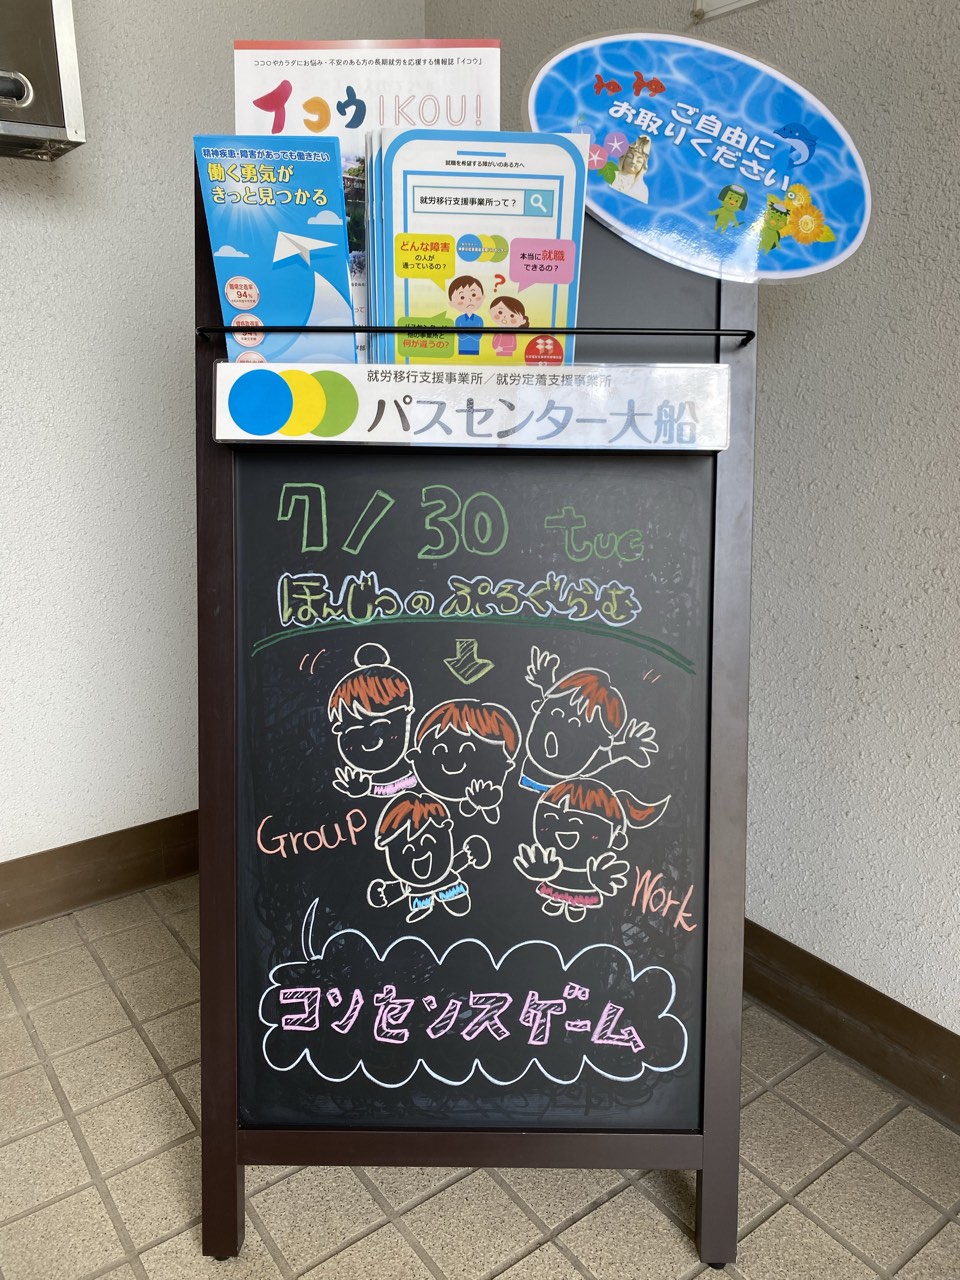 ココロやカラダにお悩み・不安のある方の長期就労を応援する情報誌「イコウ」
イコウ IKOU!
精神疾患・障害があっても働きたい
働く勇気が
きっと見つかる
職場定着率
94%
就職を希望する障がいのある方へ
就労移行支援事業所って?
どんな障害
の人が
通っているの?
本当に就職
できるの?
?
他の事業所と
何が違うの?
ご自由に
お取りください。
就労移行支援事業所/就労定着支援事業所
パスセンター大船
7/30 tue
ほんじつの ぷろぐらむ
Group
Work
コンセンスゲーム